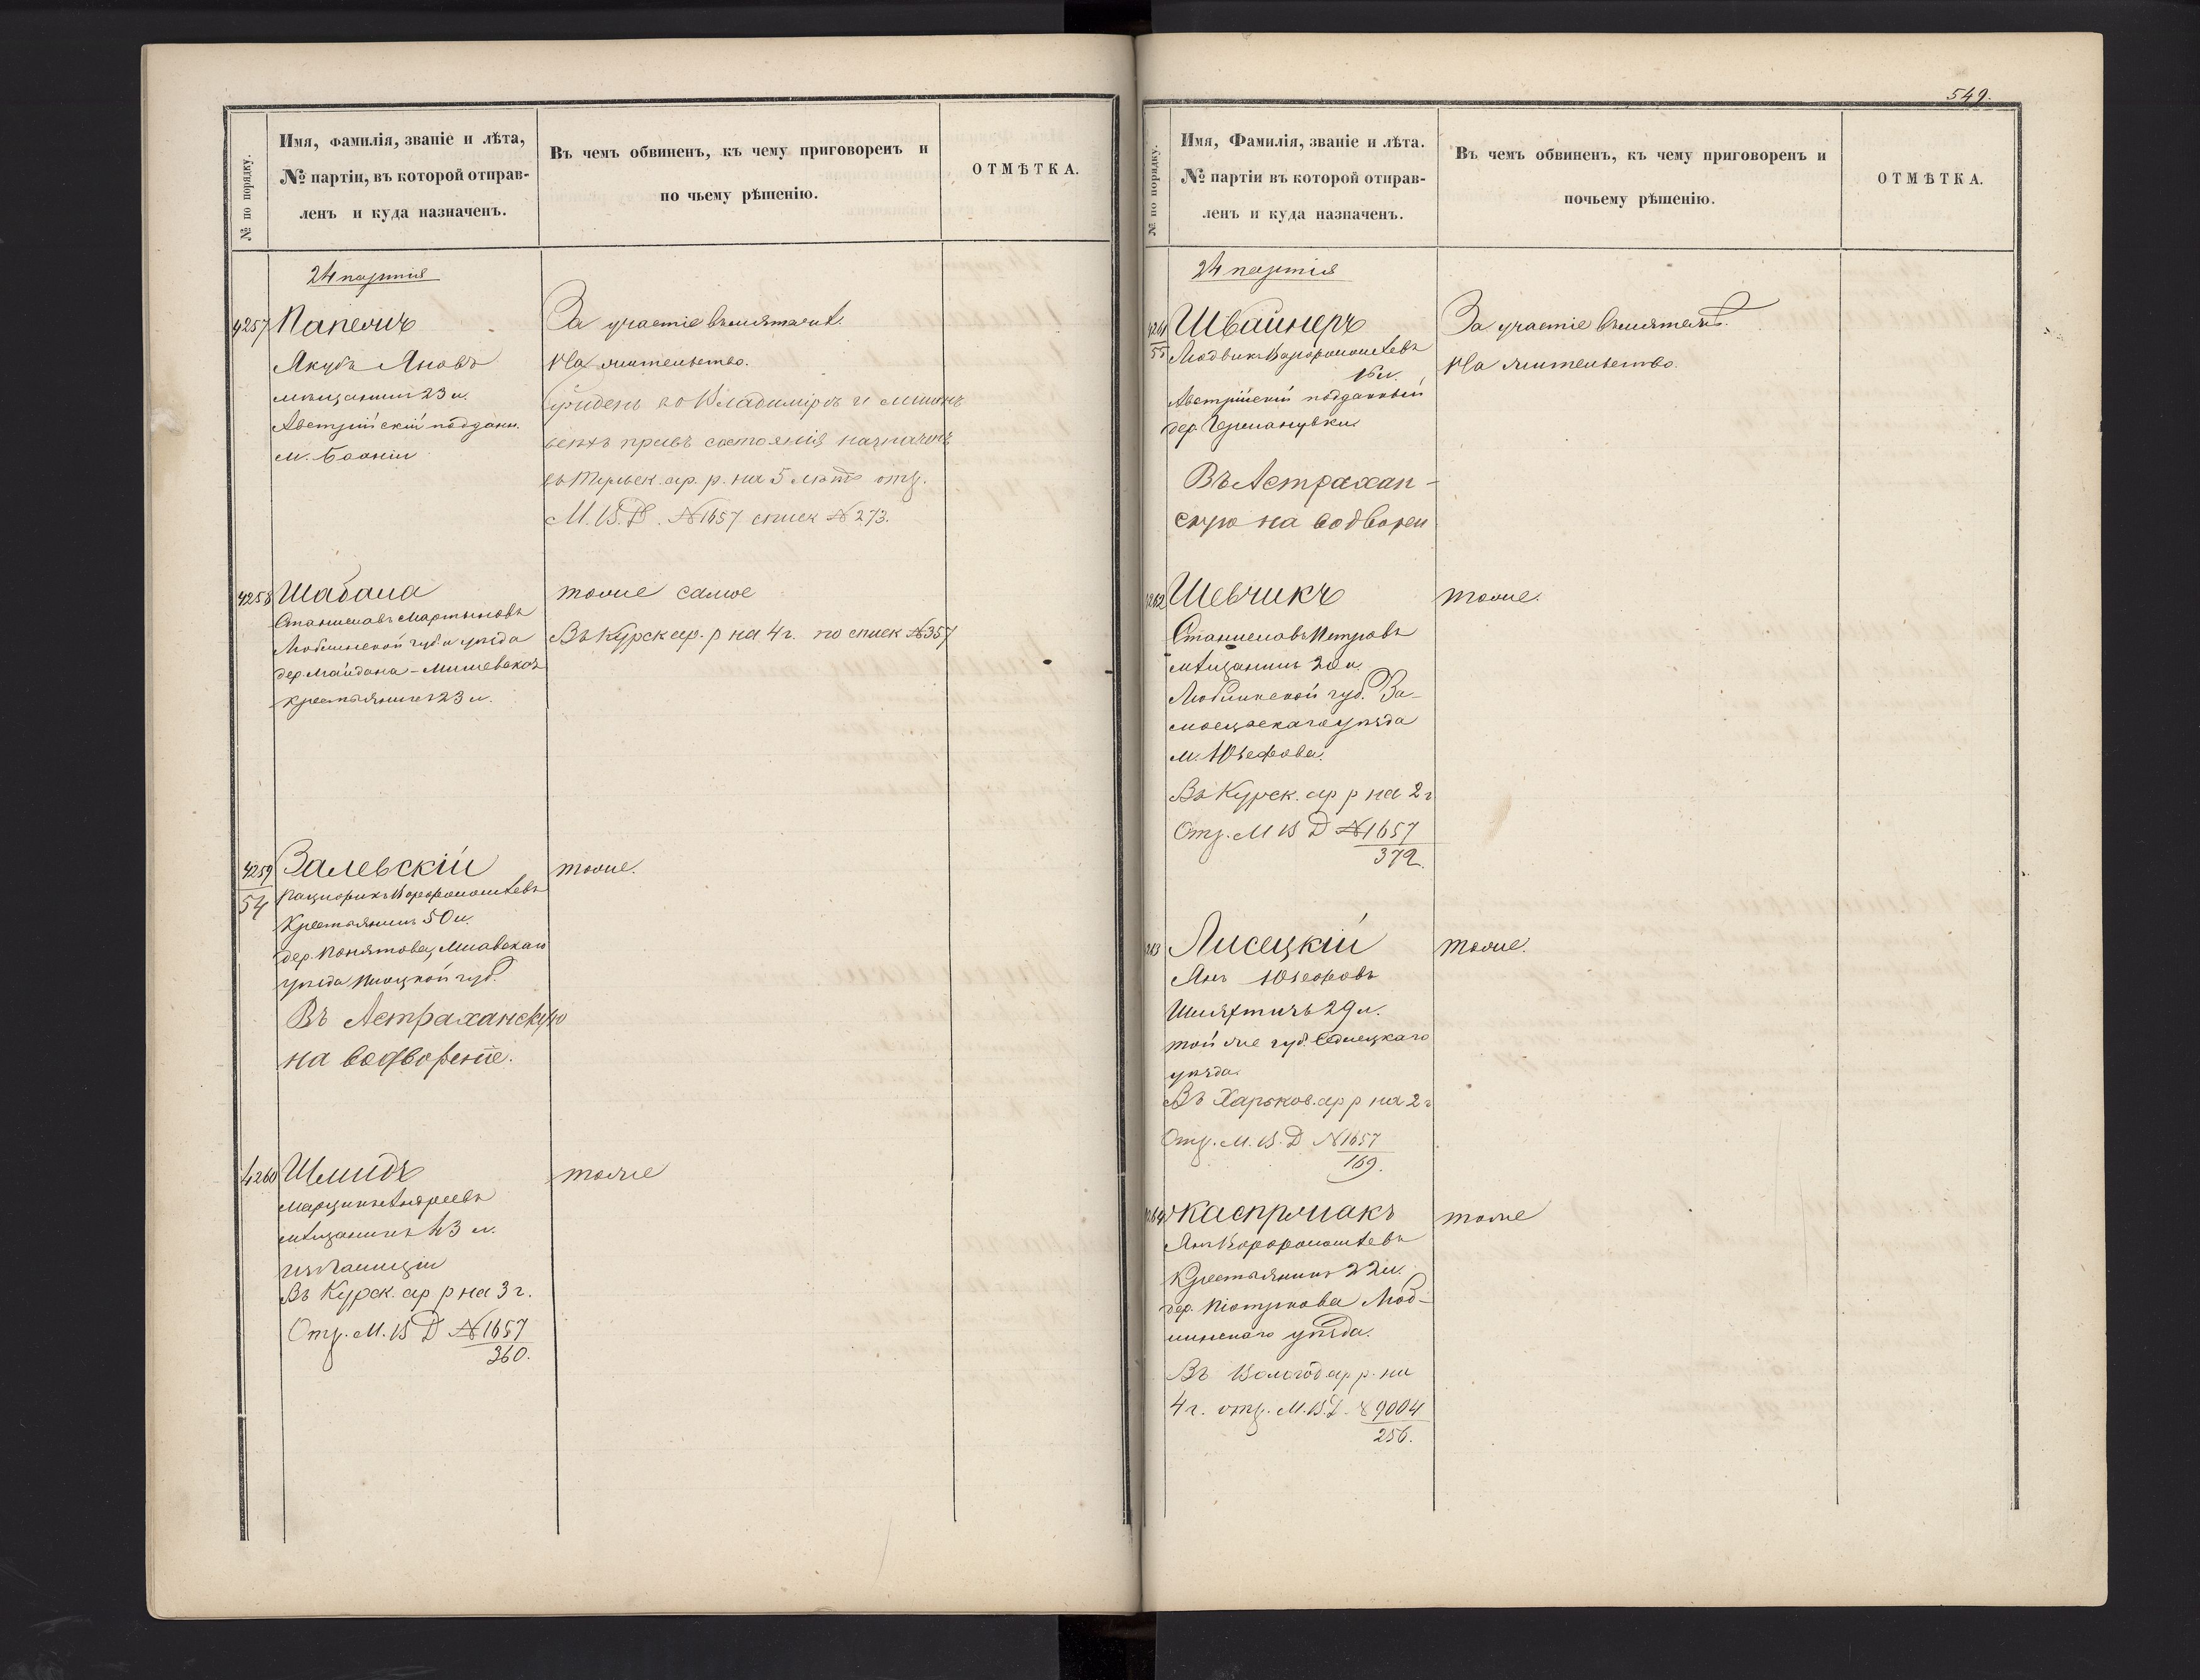 549.
№ по порядку.
Имя, фамилія, званіе и лѣта,
№ партіи, въ которой отправ-
ленъ и куда назначенъ.
Въ чемъ обвиненъ, къ чему приговоренъ и
по чьему рѣшенію.
ОТМѢТКА.
24 партія
4257
Якубъ Яновъ
мѣщанинъ 23 л.
Австрійскій поддан.
За участіе въ мятежѣ.
На жительство.
Сужденъ во Владимірѣ и лишенъ
всѣхъ правъ состоянія назначенъ
на 5 лѣтъ отз.
М. В. Д. № 1657 списк № 273.
4258 Шабала
Станиславъ Мартыновъ
Люблинской губ. и уѣзда
дер. Майдана-
крестьянинъ 23 л.
тоже самое
Въ Курск ар. р на 4 г. по списк № 357
4259
54
Залевскій
Крестьянинъ 50 л.
дер. Понятова, Млавскаго
уѣзда Плоцкой губ.
Въ Астраханскую
на водвореніе.
тоже.
4260 Шмидъ
Марцинъ Андреевъ
мѣщанинъ 43 л.
Въ Курск. ар р на 3 г.
Отз. М. В Д № 1657
360.
тоже
№ по порядку.
Имя, Фамилія, званіе и лѣта.
№ партіи въ которой отправ-
ленъ и куда назначенъ.
Въ чемъ обвиненъ, къ чему приговоренъ и
почьему рѣшенію.
ОТМѢТКА.
24 партія
4261
55
Швайнеръ
Людвикъ Варфоломѣевъ
16 л.
Австрійскій подданный
дер. Германувки
Въ Астрахан-
скую на водворен
За участіе въ мятежѣ.
На жительство.
4262 Шевчикъ
Станиславъ Петровъ
мѣщанинъ 20 л.
Люблинской губ. За-
мосцьскаго уѣзда
м. Юзефова.
Въ Курск. ар р на 2 г
Отз. М В Д № 1657
372.
тоже.
263 Лисецкій
Янъ Юзефовъ
Шляхтичъ 29 л.
той же губ. Седлецкаго
уѣзда.
Въ Харьков. ар р на 2 г
Отз. М. В. Д № 1657
169.
тоже.
Каспржакъ
Янъ Варфоломѣевъ
Крестьянинъ 22 л.
дер. Піотркова Люб-
линскаго уѣзда.
Въ Вологод ар р. на
4 г. отз. М. В. Д. № 9004
256.
тоже